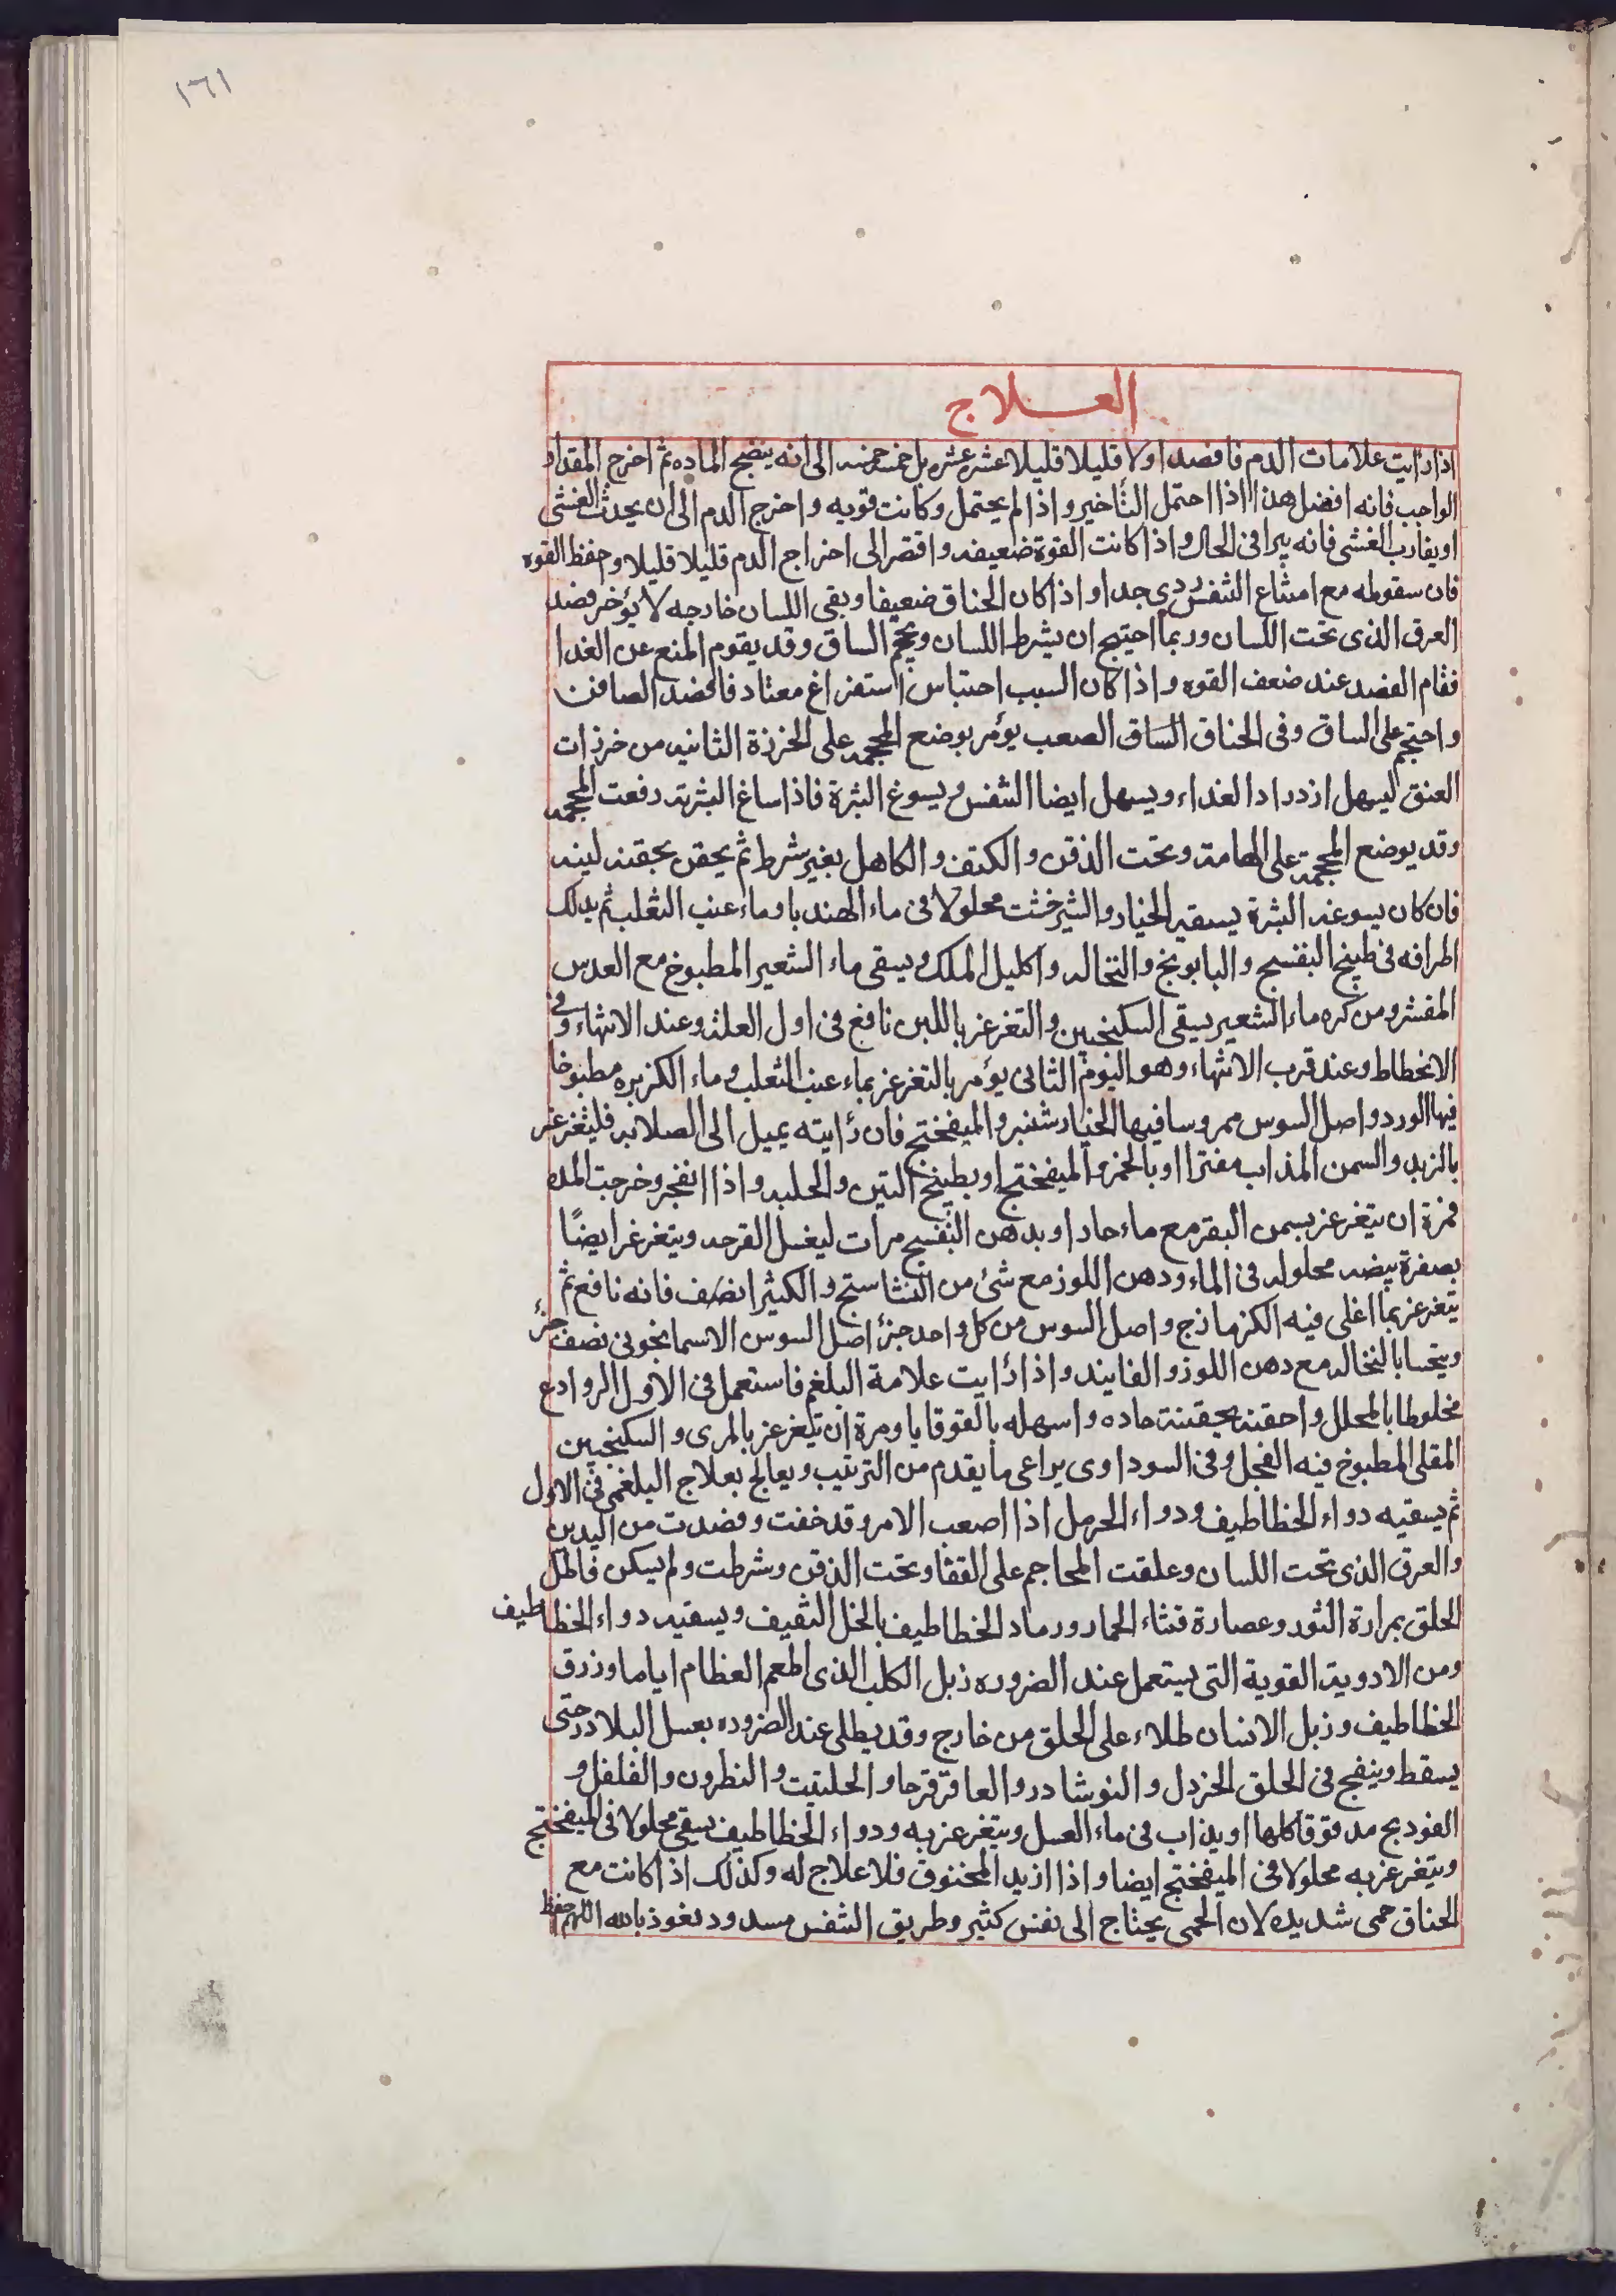 ١٦١
العلاج
اذا رايت علامات الدم فافصد اولا قليلا قليلا عشره عشره بل خمسه خمسه الى انه ينضج الماده ثم اخرج المقدار
الواجب فانه افضل هذا اذا احتمل التأخير واذا لم يحتمل وكانت قويه واخرج الدم الى ان يحدث الغشى
او يقارب الغشى فانه يبرا فى الحال واذا كانت القوة ضعيفه واقصر الى اخراج الدم قليلا قليلا وحفظ القوه
فان سقوطه مع امتناع التنفس ردى جدا واذا كان الخناق ضعيفا وبقى اللسان خارجه لا يؤخر فصد
العرق الذى تحت اللسان وربما احتيج ان يشرط اللسان ويحجم الساق وقد يقوم المنع عن الغدا
فقام الفصد عند ضعف القوه واذا كان السبب احتباس استفراغ معتاد فافصد الصافن
واحتجم على الساق وفى الخناق الساق الصعب يؤمر بوضع المحجمه على الخرزة الثانيه من خرزات
العنق ليسهل ازدراد الغداء ويسهل ايضا التنفس ويسوغ البثرة فاذا ساغ البثرته رفعت المحجمه
وقد يوضع المحجمة على الهامة وتحت الذقن والكتف والكاهل بغير شرط ثم يحقن بحقنه لينه
فان كان يسوغه البثرة يسقيه الخيار والشيرخشت محلولا فى ماء الهندبا وماء عنب الثعلب ثم يدلك
اطرافه فى طبيخ البنفسج والبابونج والنخاله واكليل الملك ويسقى ماء الشعير المطبوخ مع العدس
المقشر ومن كره ماء الشعير يسقى السكنجبين والتغرغر باللبن نافع فى اول العلة وعند الانتهاء وفى
الانحطاط وعند قرب الانتهاء وهو اليوم الثانى يؤمر بالتغرغر بماء عنب الثعلب وماء الكزبره مطبوخا
فيها الورد واصل السوس ممروسا فيها الخيار شنبر والميفختج فان رأيته يميل الى الصلابه فليغرغر
بالزبد والسمن المذاب مفترا او بالخمر والميفختج او بطبيخ التين والحلبه واذا انفجر وخرجت المده
فمرة ان يتغرغر بسمن البقر مع ماء حار او بدهن البنفسج مرات ليغسل القرحه ويتغرغر ايضًا
بصفرة بيضه محلوله فى الماء ودهن اللوز مع شئ من النشاستج والكثيرا نصف فانه نافع ثم
يتغرغر بما اغلى فيه الكزمازج واصل السوس من كل واحد جزء اصل السوس الاسمانجونى نصف جزء
ويتحسا بالنخاله مع دهن اللوز والفانيد واذا رأيت علامة البلغم فاستعمل فى الاول الروادع
مخلوطا بالمحلل واحقنه بحقنة حاده واسهله بالقوقايا ومرة ان يتغرغر بالمرى والسكنجبين
المقلى المطبوخ فيه الفجل وفى السوداوى يراعى ما يقدم من الترتيب ويعالج بعلاج البلغمى فى الاول
ثم يسقيه دواء الخطاطيف ودواء الحرمل اذا اصعب الامر وقد خفت وفصدت من اليدين
والعرق الذى تحت اللسان وعلقت المحاجم على القفا وتحت الذقن وشرطت ولم يسكن فاطل
الحلق بمرارة الثور وعصارة قثاء الحمار ورماد الخطاطيف بالخل الثقيف ويسقيه دواء الخطاطيف
ومن الادوية القوية التى يستعمل عند الضروره زبل الكلب الذى اطعم العظام اياما وزرق
الخطاطيف وزبل الانسان طلاء على الحلق من خارج وقد يطلى عند الضروره بعسل البلادر حتى
يسقط وينفخ فى الحلق الخردل والنوشادر والعاقرقرحا والحلتيت والنطرون والفلفل و
الفودنج مدقوقا كلها او يذاب فى ماء العسل ويتغرغر به ودواء الخطاطيف يسقى محلولا فى الميفختج
ويتغرغر به محلولا فى الميفختج ايضا واذا ازبد المخنوق فلا علاج له وكذلك اذا كانت مع
الخناق حمى شديده لان الحمى يحتاج الى نفس كثير وطريق التنفس مسدود نعوذ بالله اللهم احفظ